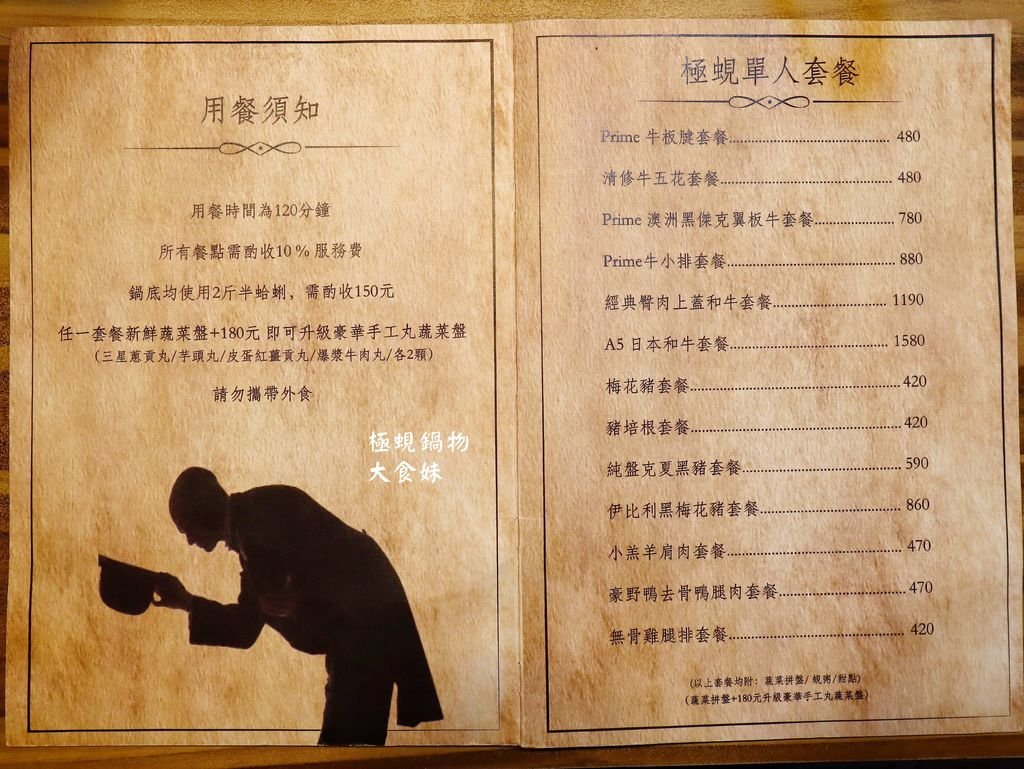 用餐須知
用餐時間為120分鐘
所有餐點需酌收10％服務費
鍋底均使用2斤半蛤蜊，需酌收150元
任一套餐新鮮蔬菜盤+180元 即可升級豪華手工丸蔬菜盤
(三星蔥貢丸/芋頭丸/皮蛋紅薑貢丸/爆漿牛肉丸/各2顆)
請勿攜帶外食
極蜆鍋物
大食妹
極蜆單人套餐
Prime 牛板腱套餐........................................ 480
清修牛五花套餐........................................... 480
Prime 澳洲黑傑克翼板牛套餐.................... 780
Prime牛小排套餐.......................................... 880
經典臀肉上蓋和牛套餐............................ 1190
A5 日本和牛套餐....................................... 1580
梅花豬套餐....................................................420
豬培根套餐....................................................420
純盤克夏黑豬套餐........................................ 590
伊比利黑梅花豬套餐................................... 860
小羔羊肩肉套餐............................................ 470
豪野鴨去骨鴨腿肉套餐...............................470
無骨雞腿排套餐........................................... 420
(以上套餐均附：蔬菜拼盤/ 蜆粥/甜點)
(蔬菜拼盤+180元升級豪華手工丸蔬菜盤)